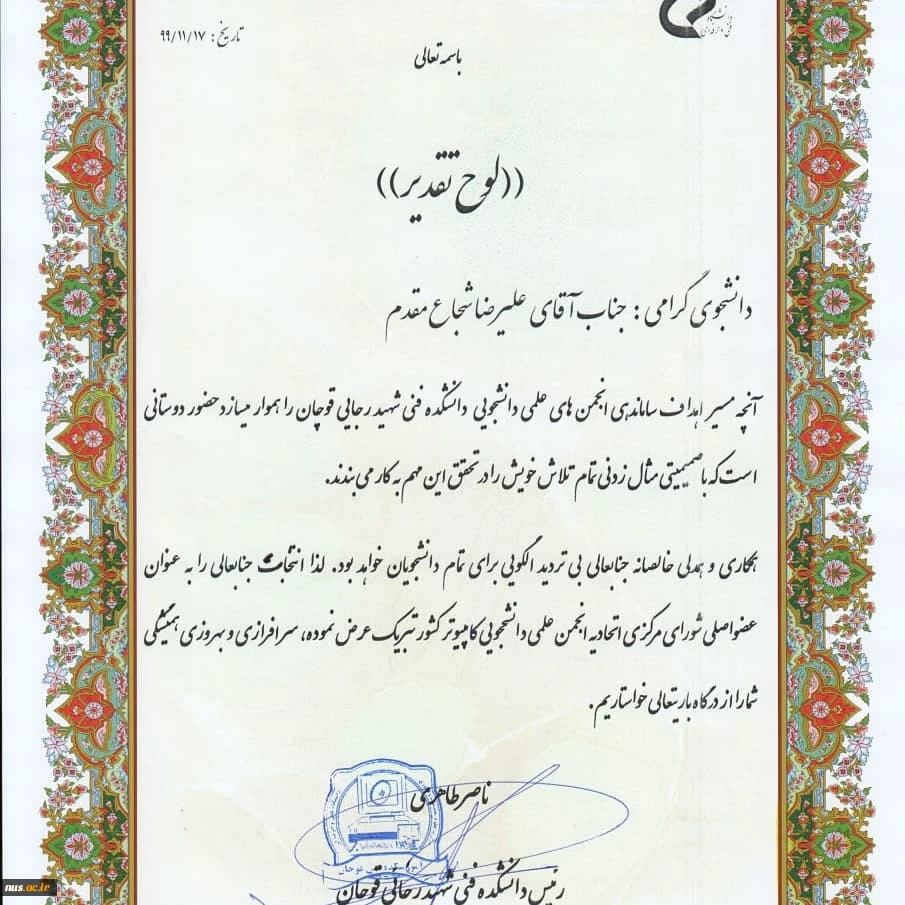 دانشگاه
فنی و حرفه‌ای
تاریخ: ۹۹/۱۱/۱۷
باسمه تعالی
((لوح تقدیر))
دانشجوی گرامی: جناب آقای علیرضا شجاع مقدم
آنچه مسیر اهداف ساماندهی انجمن های علمی دانشجویی دانشکده فنی شهید رجایی قوچان را هموار میسازد حضور دوستانی
است که با صمیمیتی مثال زدنی تمام تلاش خویش را در تحقق این مهم به کار می بندند.
همکاری و همدلی خالصانه جنابعالی بی تردید الگویی برای تمام دانشجویان خواهد بود. لذا انتخاب جنابعالی را به عنوان
عضو اصلی شورای مرکزی اتحادیه انجمن علمی دانشجویی کامپیوتر کشور تبریک عرض نموده، سرافرازی و بهروزی همیشگی
شما را از درگاه باریتعالی خواستاریم.
ناصر طاهری
رئیس دانشکده فنی شهید رجائی قوچان
nus.ac.ir